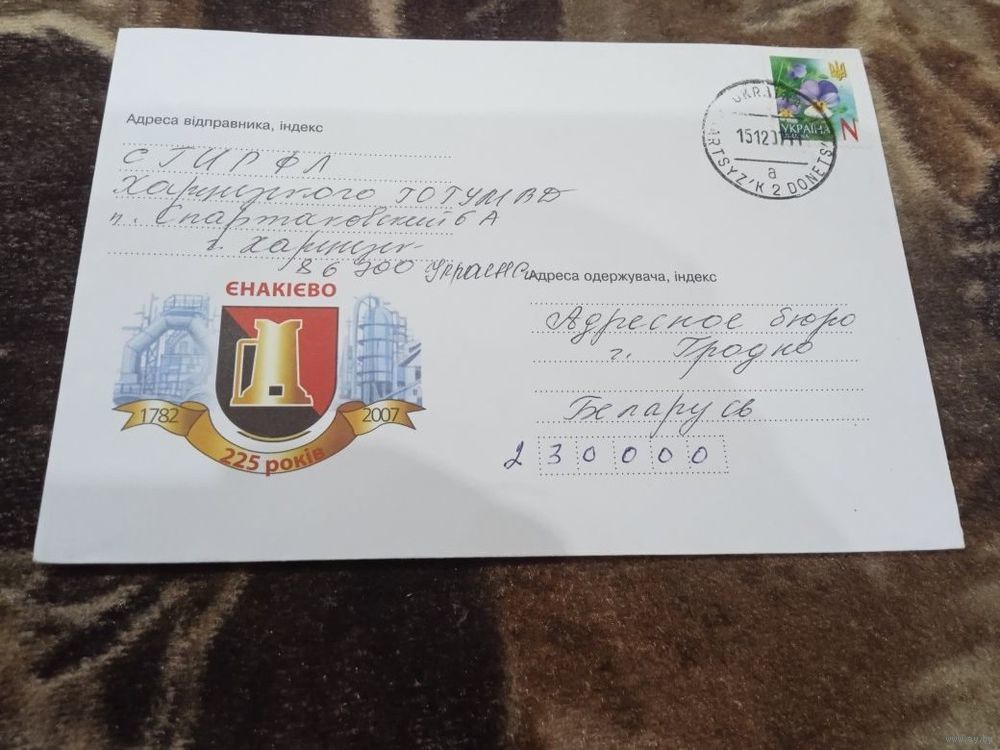 Адреса відправника, індекс
СГИРФЛ
Харцызкого ГОГУМВД
п. Спартаковский 6 А
г. Харцызк
86700 Украина
Адреса одержувача, індекс
Адресное бюро
г. Гродно
Беларусь
230000
ЄНАКІЄВО
1782 2007
225 років
УКРАЇНА
N
UKR
ARTSYZ'K 2 DONETS'
151207
а
www.ay.by